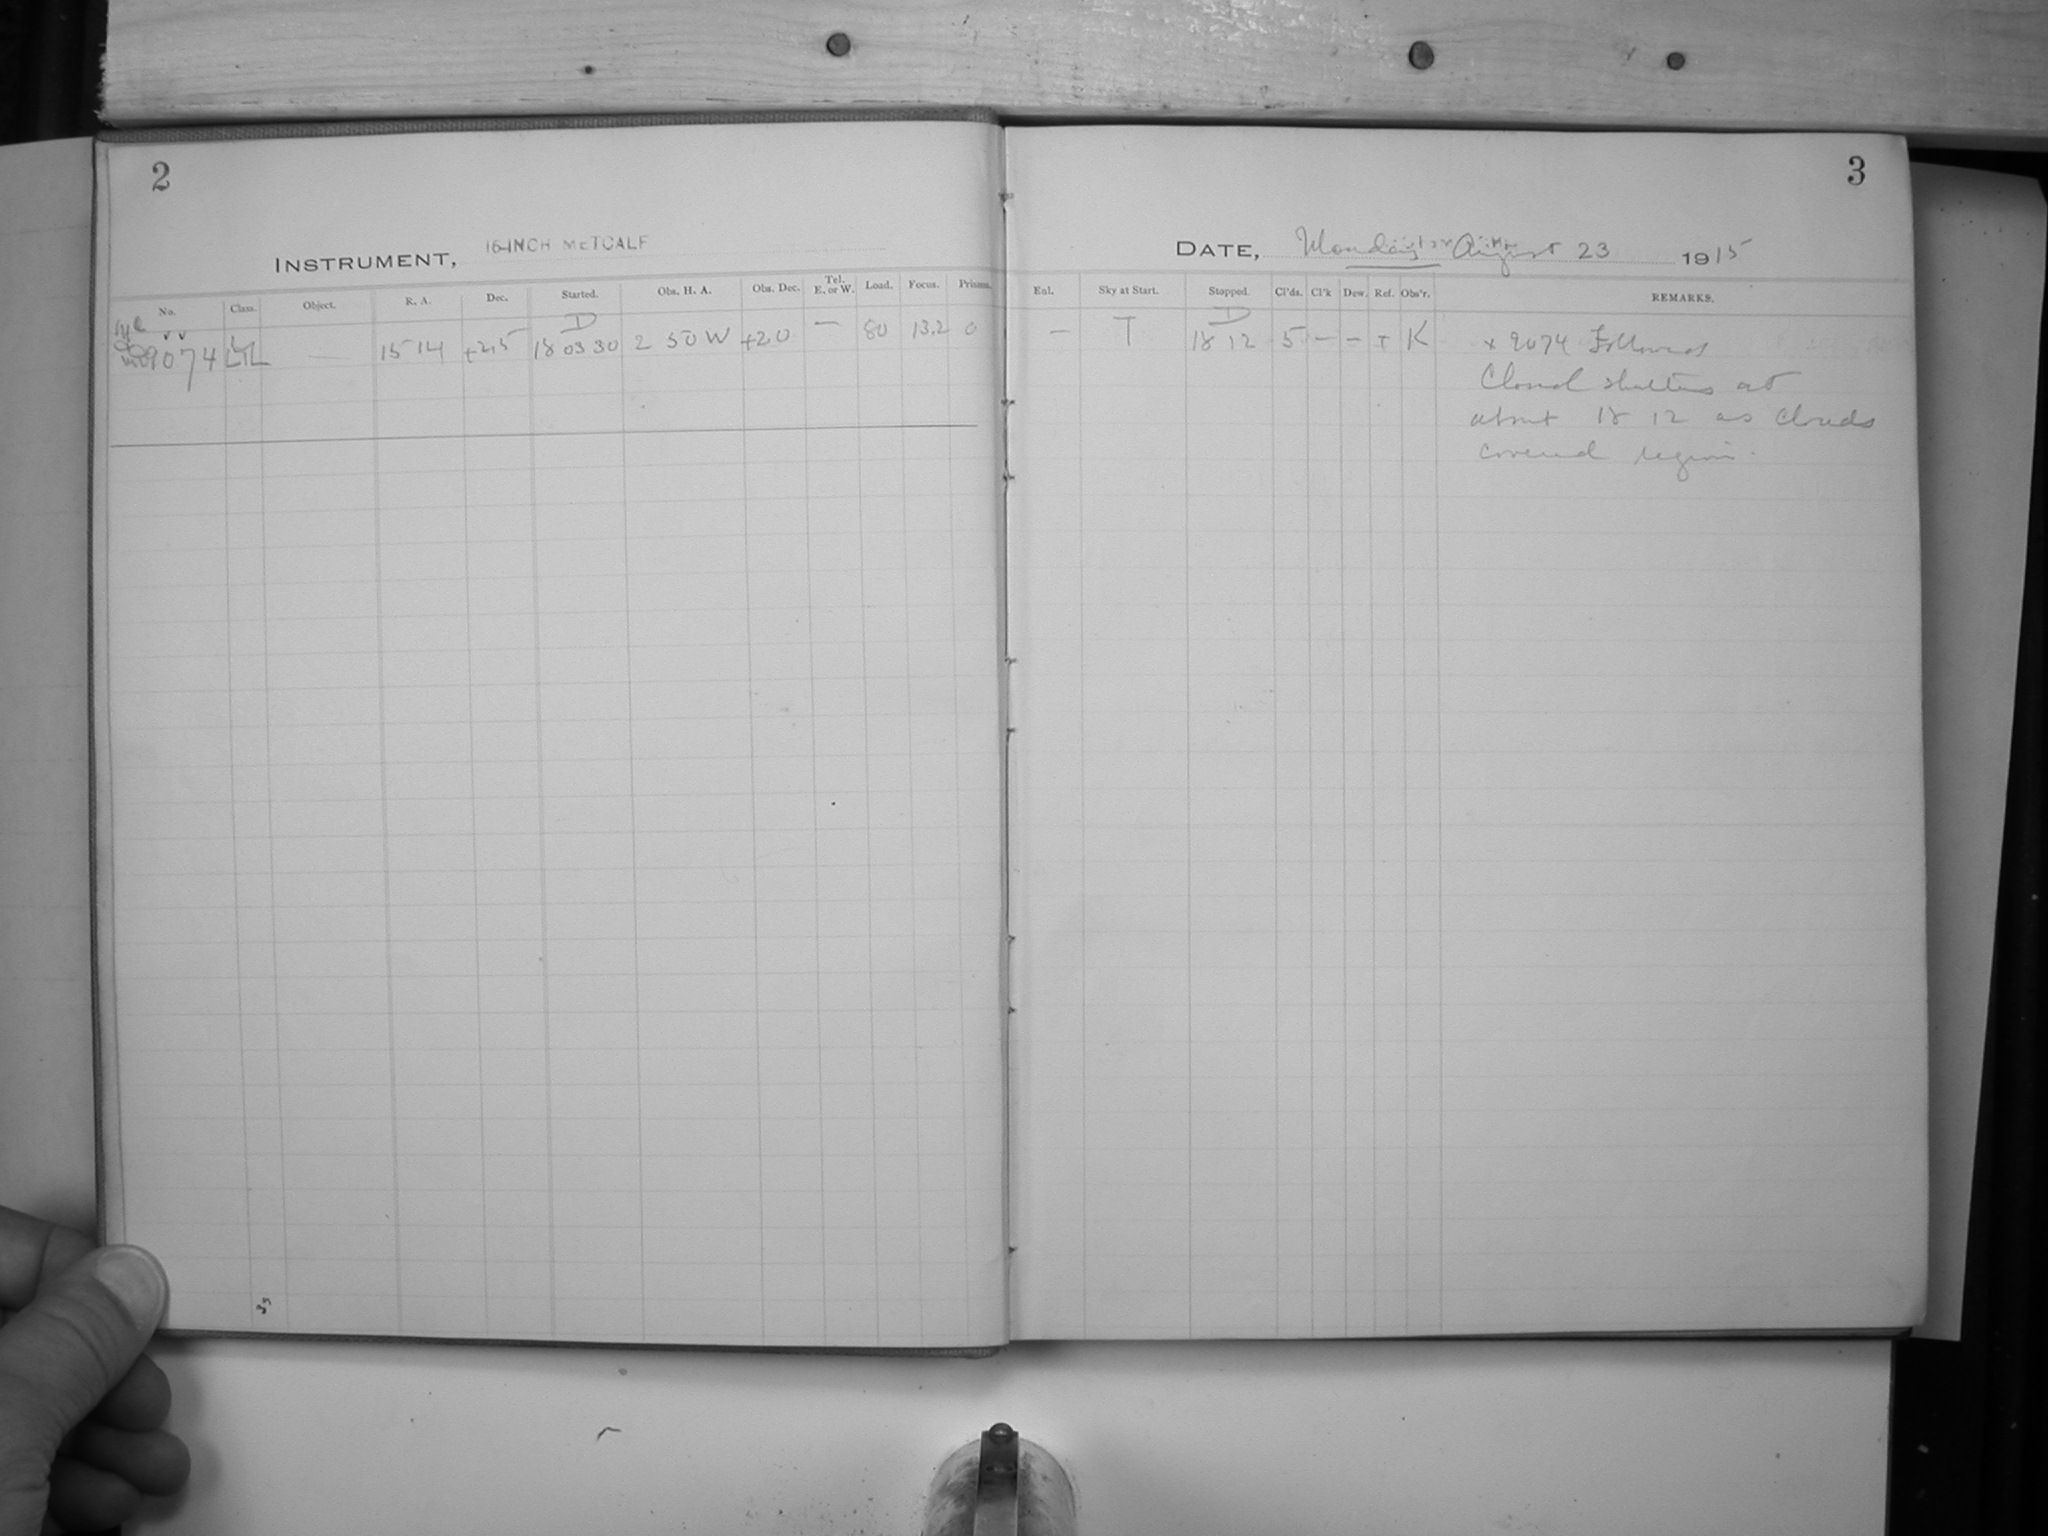 2
3
INSTRUMENT, 16-INCH METCALF
DATE, Monday August 23 1915
No. Class. Object. R. A. Dec. Started. Obs. H. A. Obs. Dec. Tel. E. or W. Load. Focus. Prisms.
Eal. Sky at Start. Stopped. Cl'ds. Cl'k Dew. Ref. Obs'r. REMARKS.
D
D
9074 — 15 14 +2.5 18 03 30 2 50 W +20 — 80 13.2 0
— T 18 12 5 – – T K x 9074 Followed
Closed shutters at
about 18 12 as clouds
covered region.